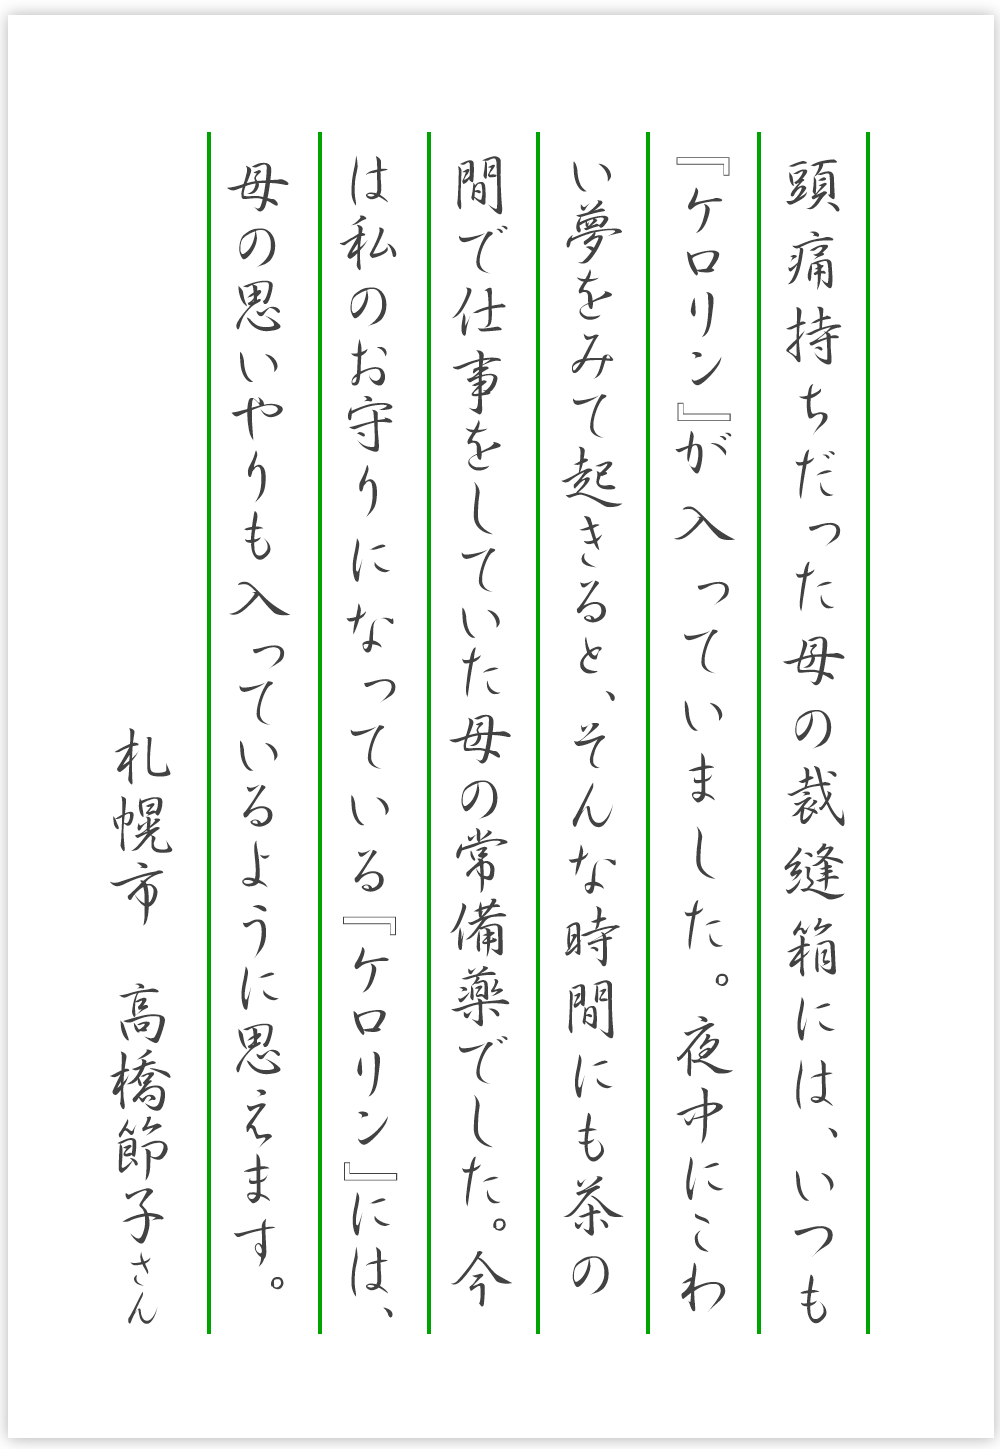 頭痛持ちだった母の裁縫箱には、いつも
『ケロリン』が入っていました。夜中にこわ
い夢をみて起きると、そんな時間にも茶の
間で仕事をしていた母の常備薬でした。今
は私のお守りになっている『ケロリン』には、
母の思いやりも入っているように思えます。
札幌市　高橋節子さん